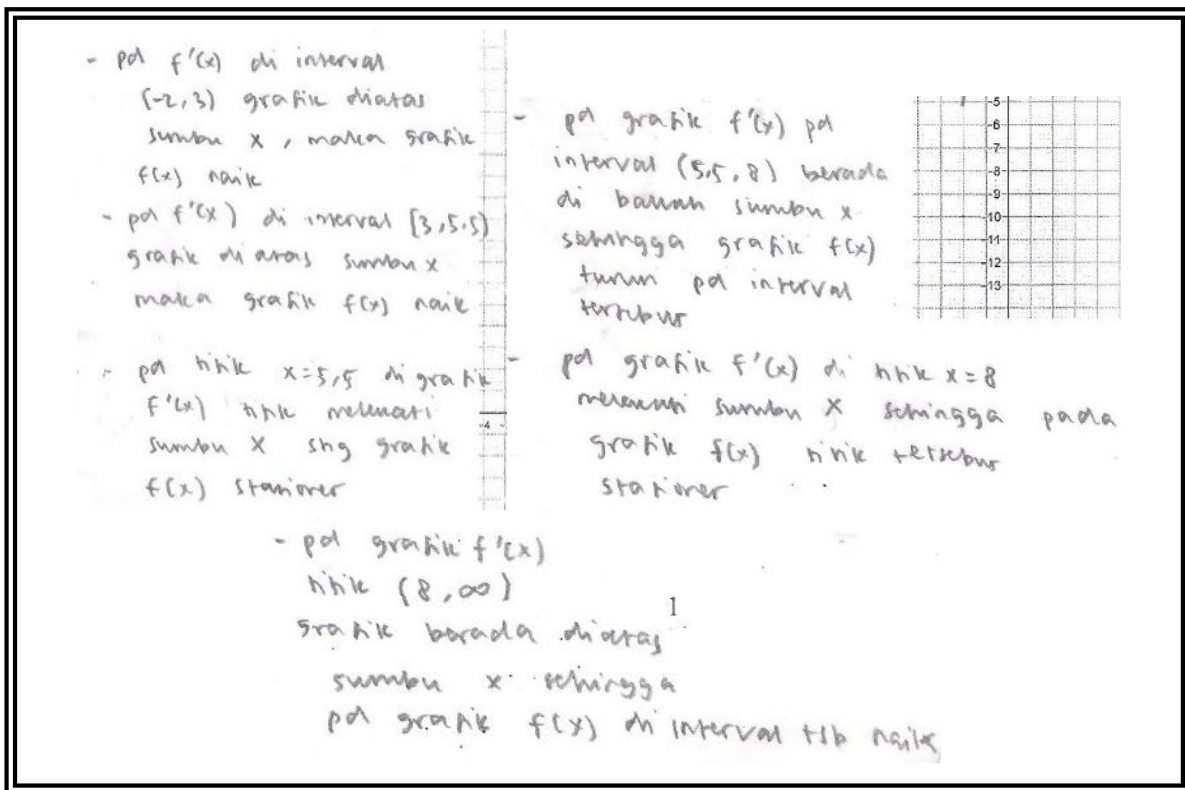 - pd f'(x) di interval
(-2,3) grafik diatas
sumbu x, maka grafik
f(x) naik
- pd f'(x) di interval [3,5.5)
grafik di atas sumbu x
maka grafik f(x) naik
- pd titik x=5,5 di grafik
f'(x) titik melewati
sumbu x shg grafik
f(x) stasioner
-4
- pd grafik f'(x) pd
interval (5,5, 8) berada
di bawah sumbu x
sehingga grafik f(x)
turun pd interval
tersebut
- pd grafik f'(x) di titik x=8
melewati sumbu x sehingga pada
grafik f(x) titik tersebut
stasioner
-5
-6
-7
-8
-9
-10
-11
-12
-13
- pd grafik f'(x)
titik (8,∞)
grafik berada diatas
sumbu x sehingga
pd grafik f(x) di interval tsb naik
1